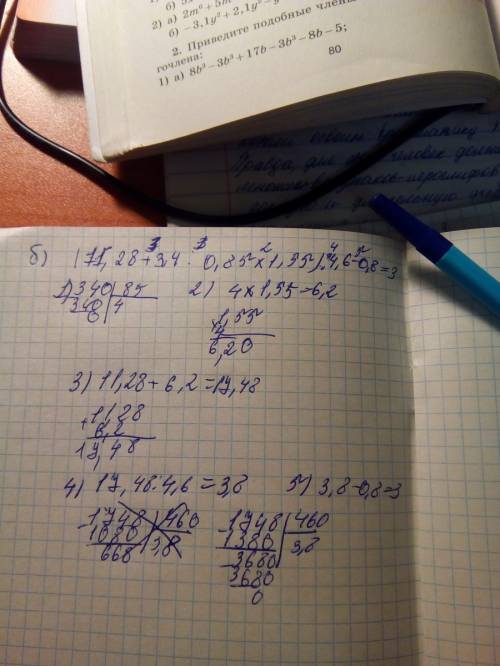 б) 5x
2) а) 2m⁶ + 5m
б) −3,1y² + 2,1y² − y
2. Приведите подобные члены
гочлена:
1) а) 8b³ − 3b³ + 17b − 3b³ − 8b − 5;
80
б) (11,28 + 3,4 : 0,85 × 1,55) : 4,6 − 0,8 = 3
3 1 2 4 5
1) 340 | 85
340 | 4
0
2) 4 × 1,55 = 6,2
1,55
× 4
6,20
3) 11,28 + 6,2 = 17,48
+ 11,28
6,2
17,48
4) 17,48 : 4,6 = 3,8
5) 3,8 − 0,8 = 3
− 1748 | 460
1080 | 3,8
668
− 1748 | 460
1380 | 3,8
− 3680
3680
0